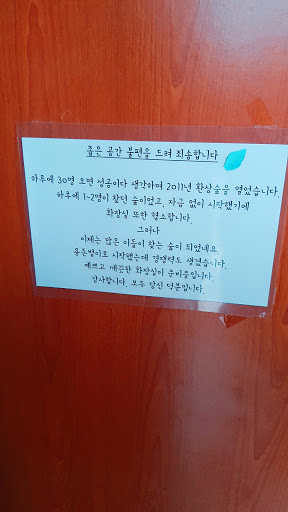 좁은 공간 불편을 드려 죄송합니다
하루에 30명 오면 성공이다 생각하며 2011년 환상숲을 열었습니다.
하루에 1~2명이 찾던 숲이었고, 자금 없이 시작했기에
화장실 또한 협소합니다.
그러나
이제는 많은 이들이 찾는 숲이 되었네요
용돈벌이로 시작했는데 경쟁력도 생겼습니다.
예쁘고 깨끗한 화장실이 준비중입니다.
감사합니다. 모두 당신 덕분입니다.